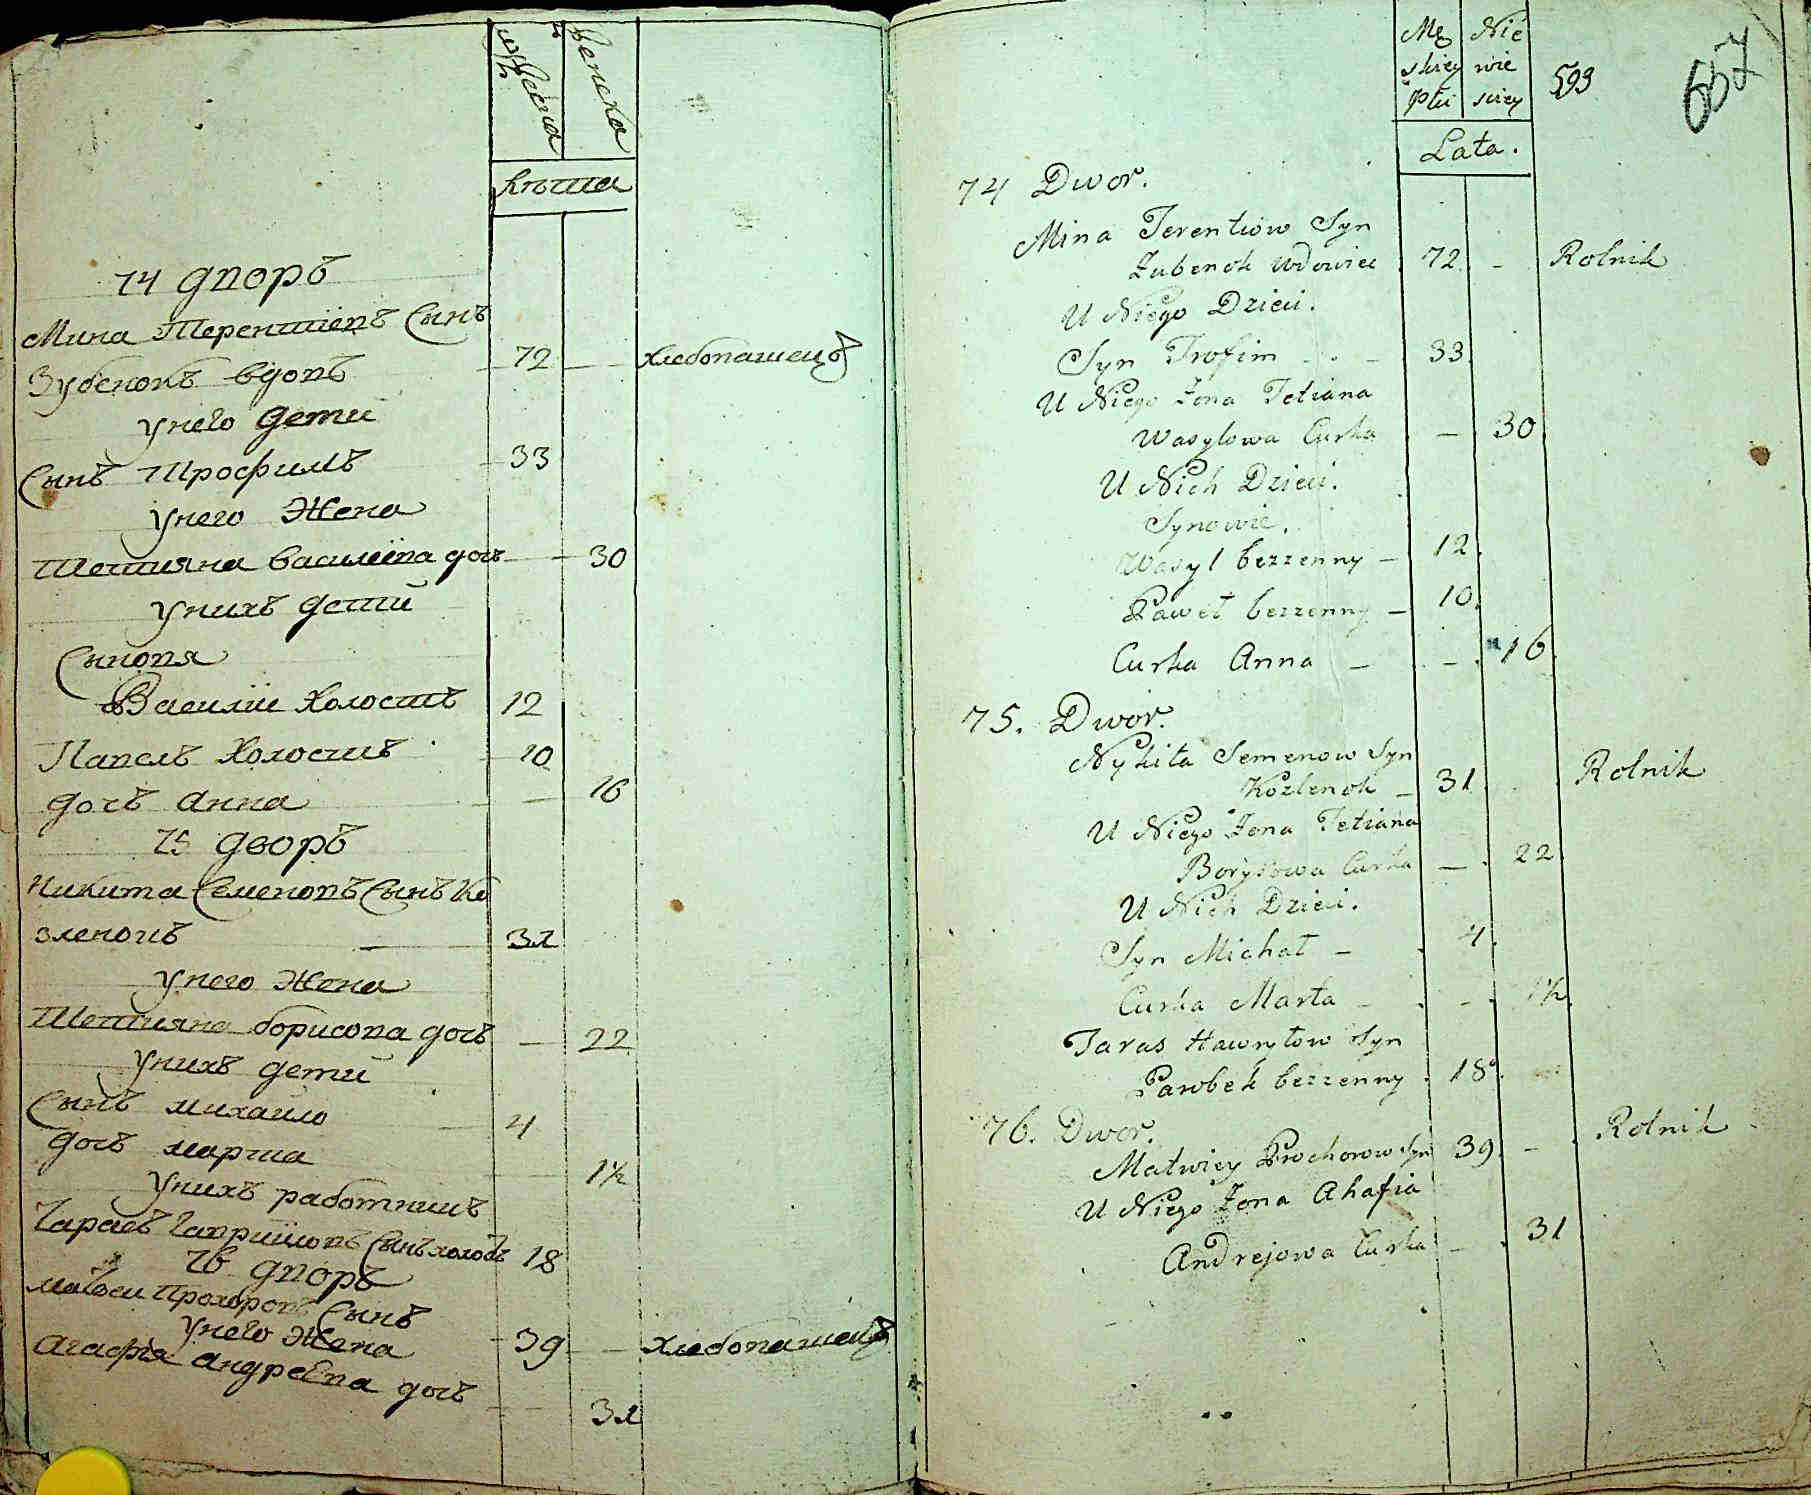 мужеска
женска
лѣта
74 дворъ
Мина Терентіевъ Сынъ
Зубенокъ вдовъ 72 — хлебопашецъ
унего дети
Сынъ Трофимъ 33
унего Жена
Тетияна василіева дочь — 30
унихъ дети
Сыновя
Василіи Холостъ 12
Павелъ Холостъ 10
дочь анна — 16
75 дворъ
Никита Семеновъ Сынъ Ко
зленокъ — 31
унего Жена
Тетияна борисова дочь — 22
унихъ дети
Сынъ михаило 4
дочь марта 1½
унихъ работникъ
Тарасъ Гавриловъ Сынъ холостъ 18
76 дворъ
матвеи Прохоровъ Сынъ
унего Жена 39 — хлебопашецъ
агафія андреева дочь
31
Mę Nie
skiey wie
Płci sciey
593
657
Lata.
74 Dwor.
Mina Terentiow Syn
Zubenok wdowiec 72 - Rolnik
U Niego Dzieci.
Syn Trofim - - 33
U Niego Zona Tetiana
Wasylowa Curka — 30
U Nich Dzieci.
Synowie.
Wasyl bezzenny — 12
Paweł bezzenny — 10.
Curka Anna — - 16
75. Dwor.
Nykita Semenow Syn
Kozlenok — 31 Rolnik
U Niego Zona Tetiana
Borysowa Curka — 22
U Nich Dzieci.
Syn Michał — 4.
Curka Marta - - 1½
Taras Hawryłow Syn
Parobek bezzenny 18
76. Dwor.
Matwiey Prochorow Syn 39 - Rolnik
U Niego Zona Ahafia
Andrejowa Curka — 31